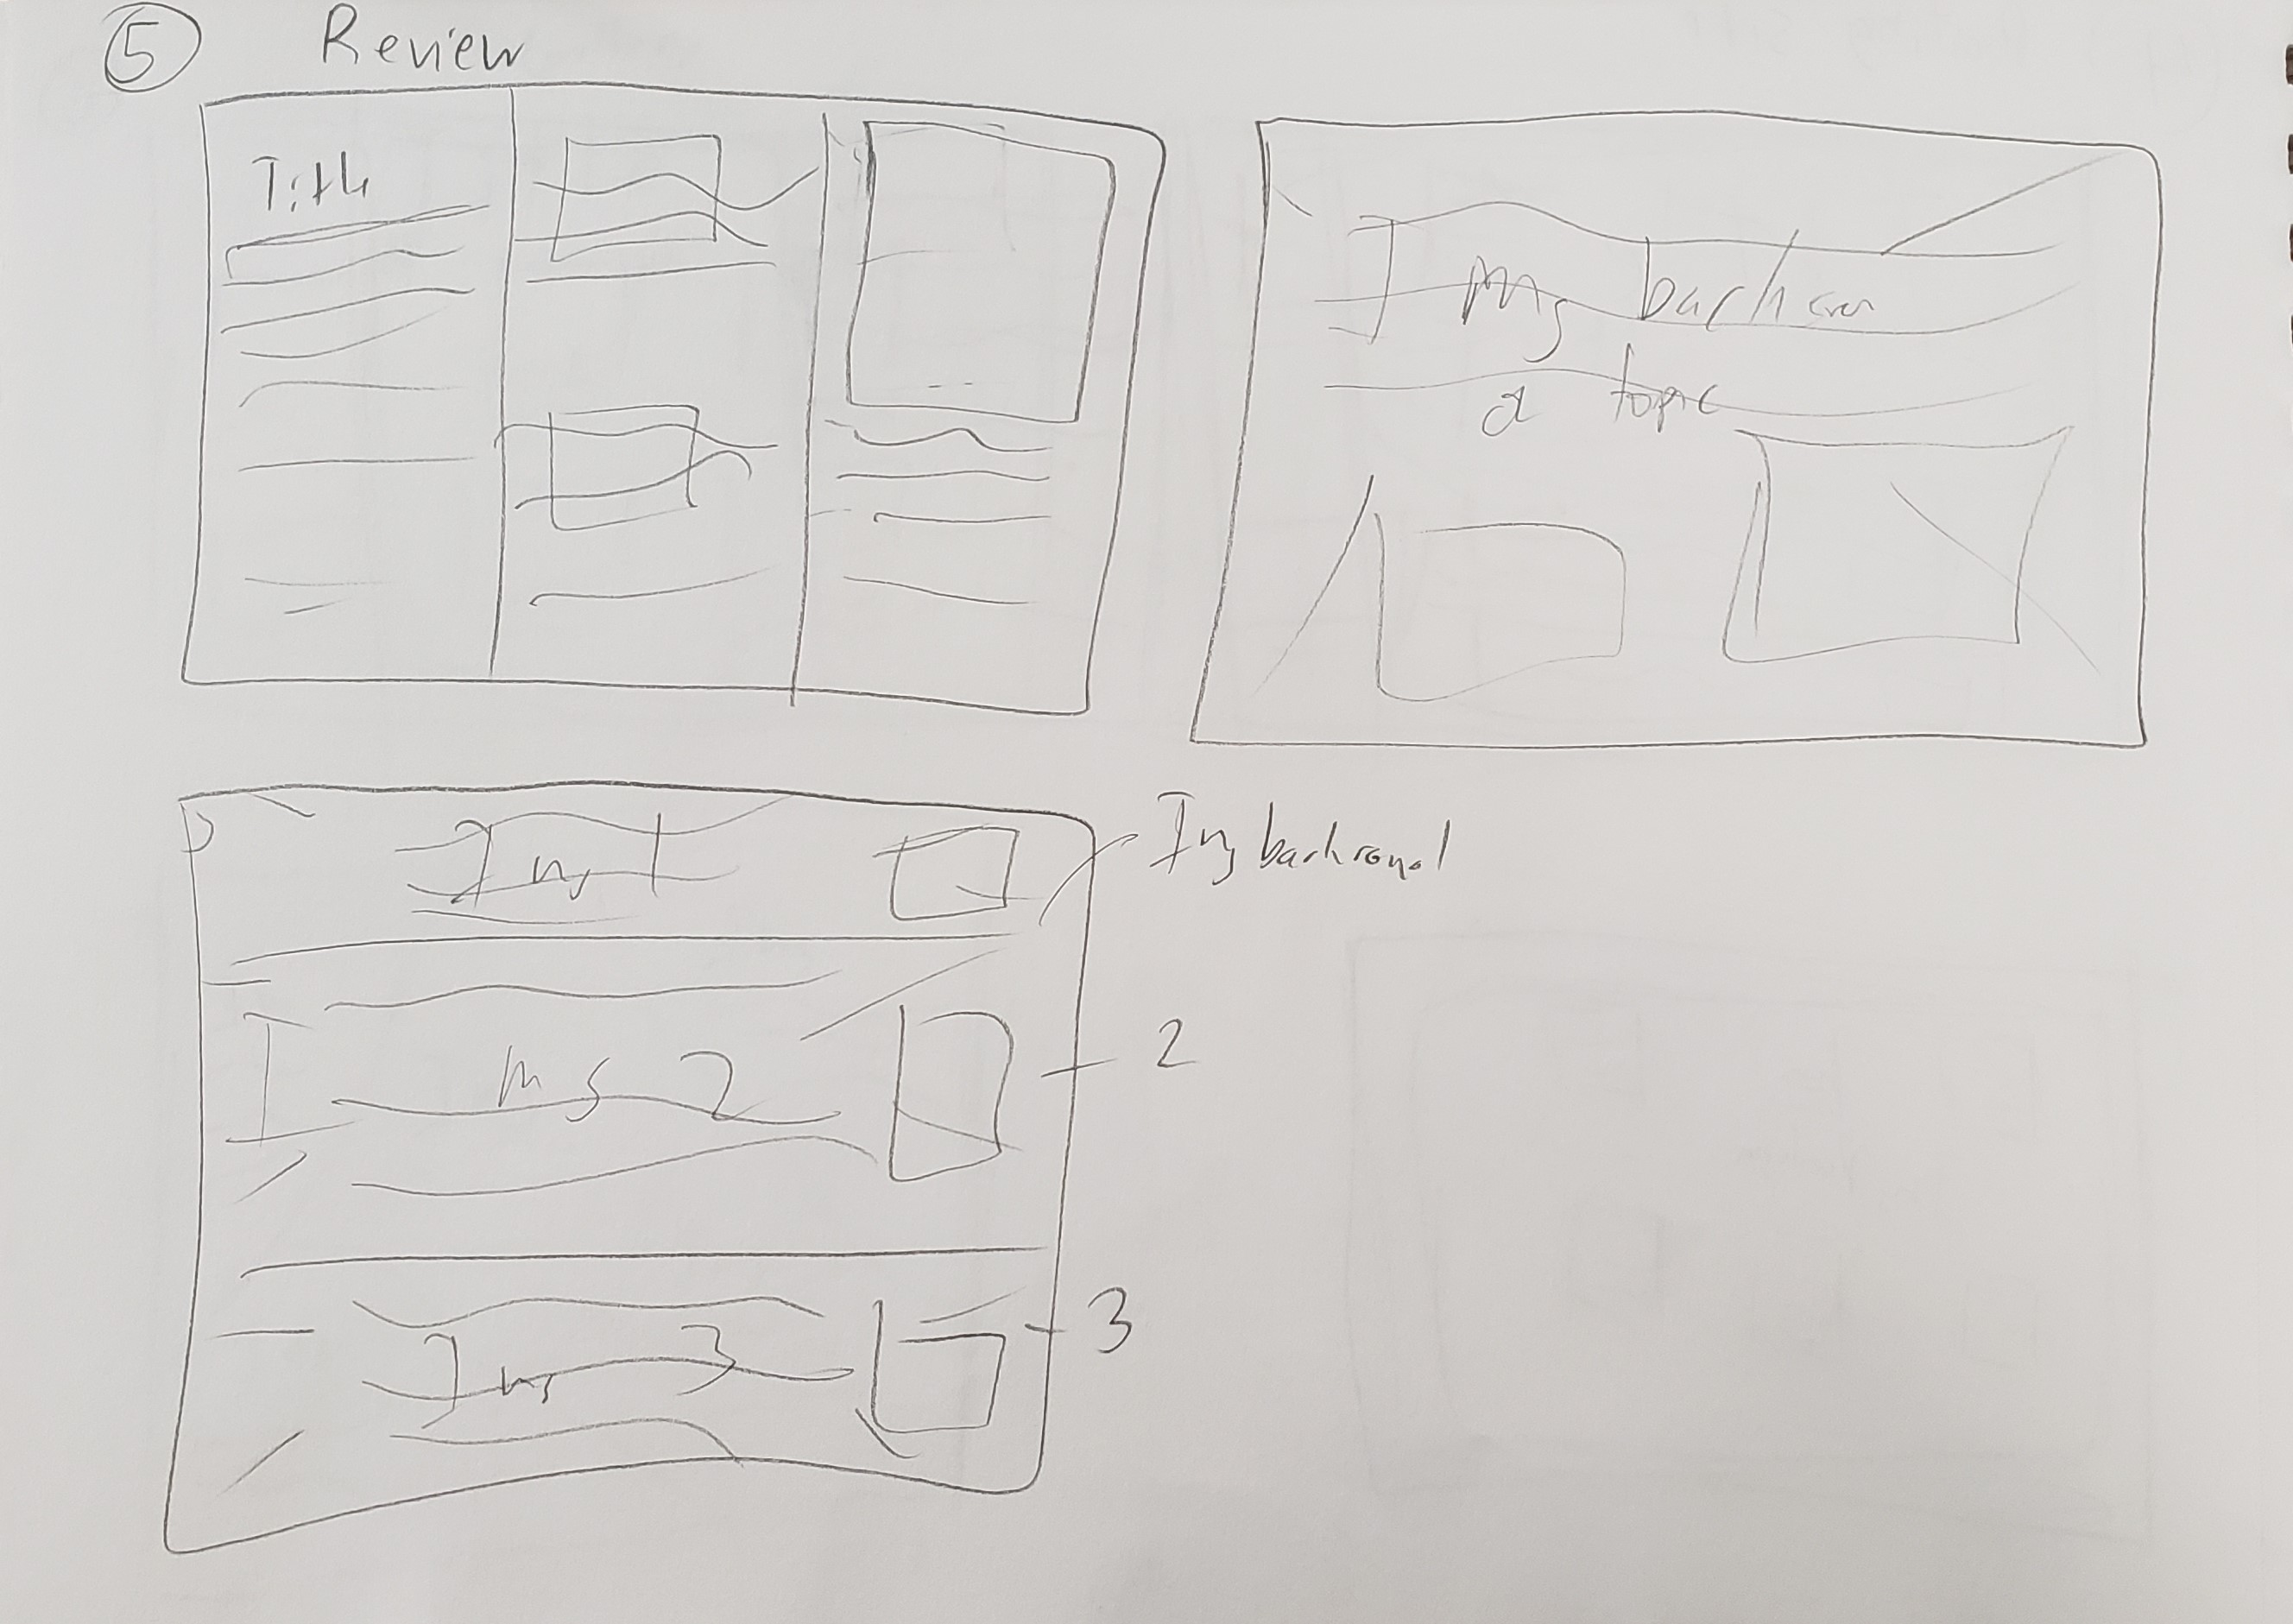 5 Review
Title
Img backgrou
a topic
Img 1
Img backround
Img 2
2
Img 3
3